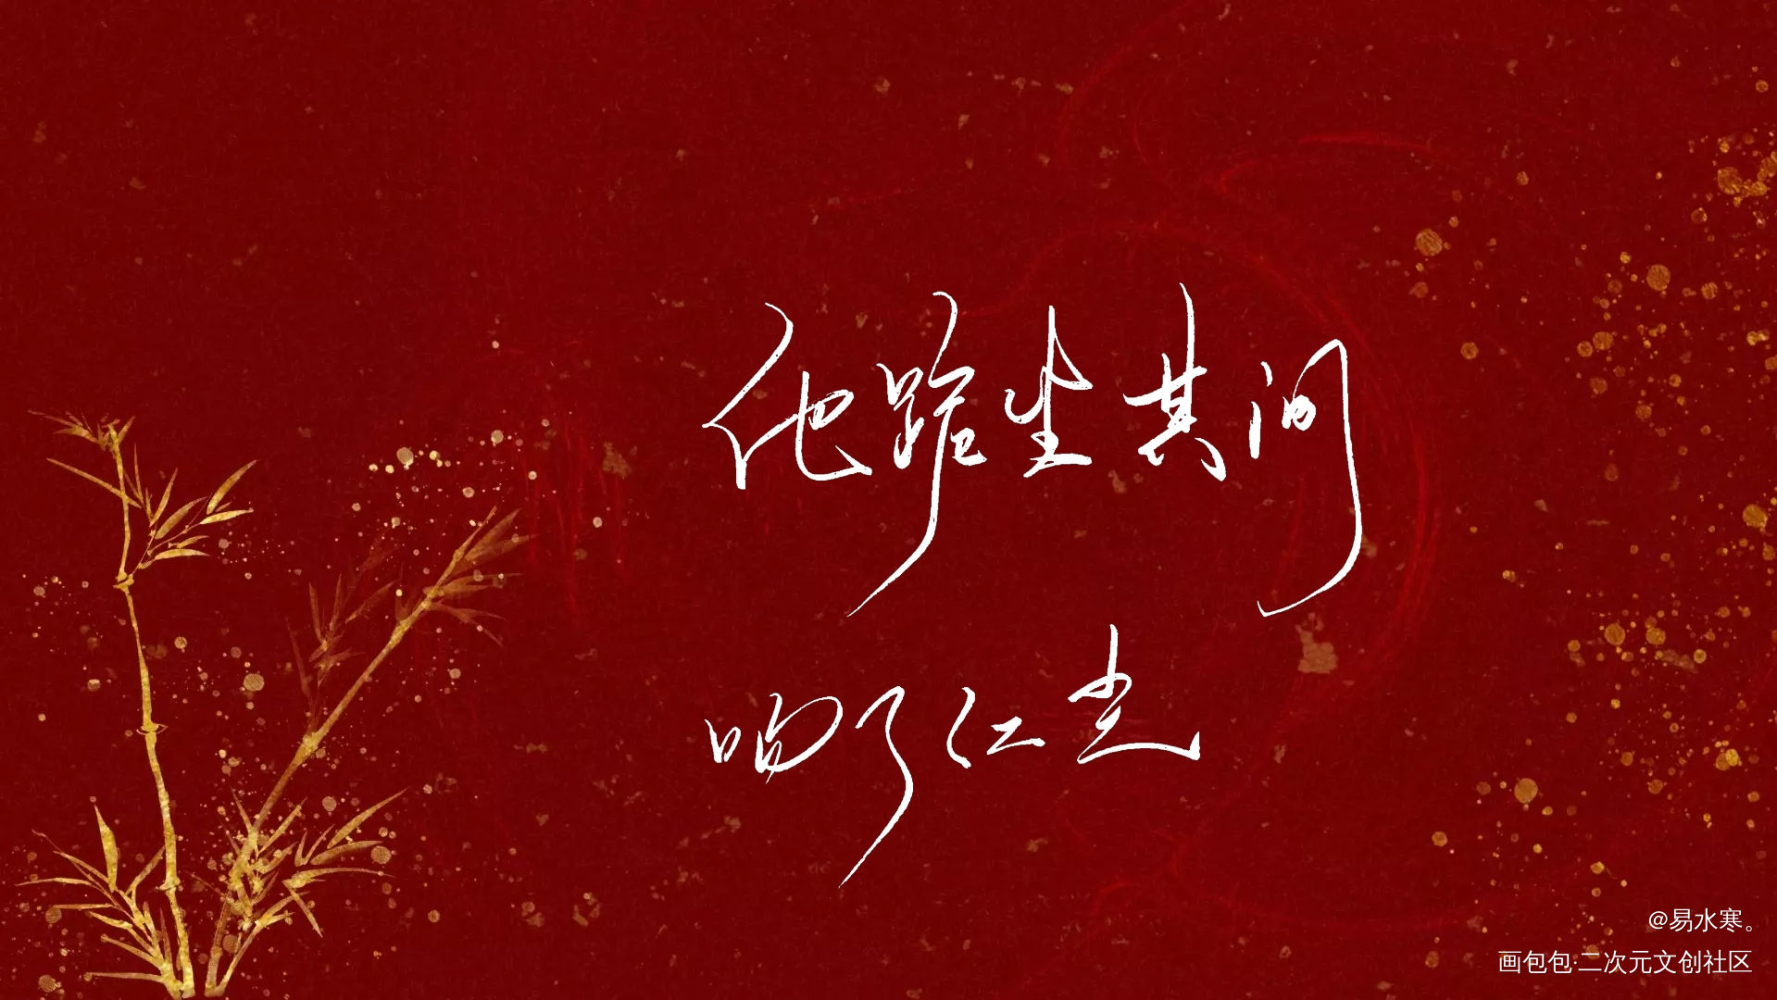 他跪坐其间
吻了红尘
@易水寒。
画包包·二次元文创社区